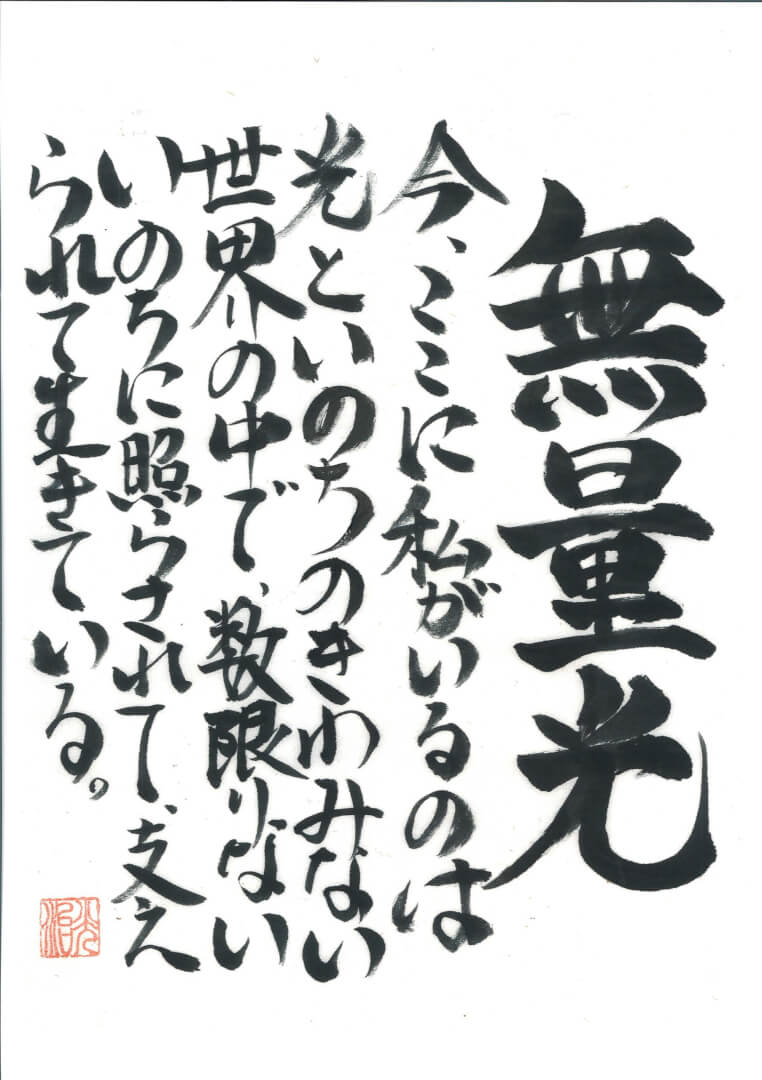 無量光
今、ここに私がいるのは
光といのちのきわみない
世界の中で、数限りない
いのちに照らされて、支え
られて生きている。